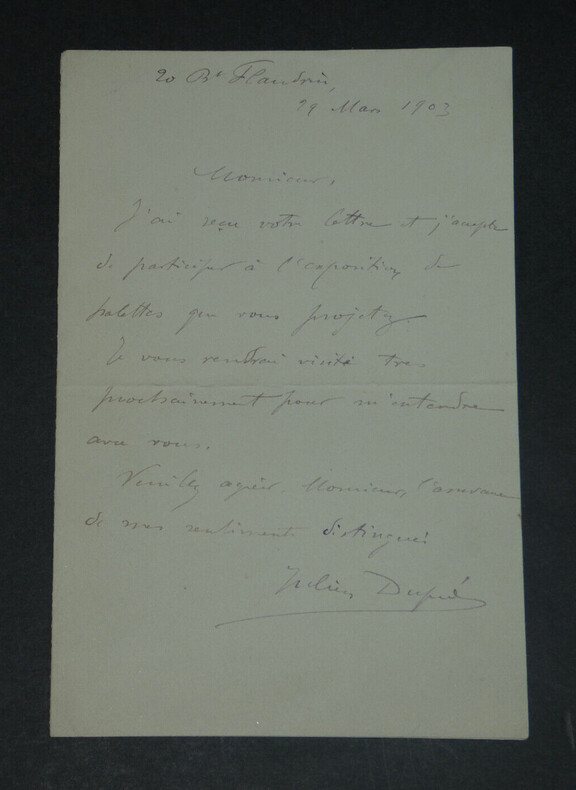 20 Bd Flandrin,
29 Mars 1903
Monsieur,
J'ai reçu votre lettre et j'accepte
de participer à l'exposition de
palettes que vous projetez.
Je vous rendrai visite très
prochainement pour m'entendre
avec vous.
Veuillez agréer, Monsieur, l'assurance
de mes sentiments distingués
Julien Dupré